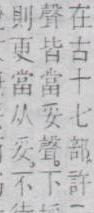 在古十七部許
聲皆當妥聲下
則更當从妥不